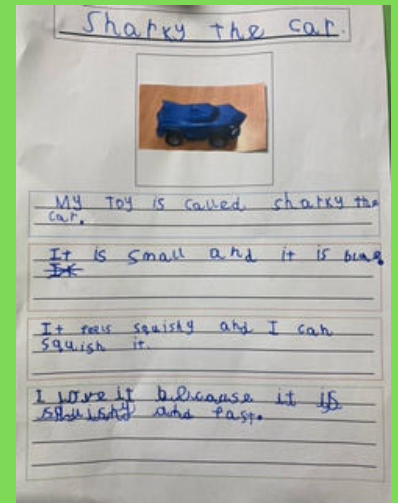 Sharky the car.
My Toy is called sharky the
car.
It is small and it is blue.
It feels squishy and I can
squish it.
I love it because it is
squishy and fast.